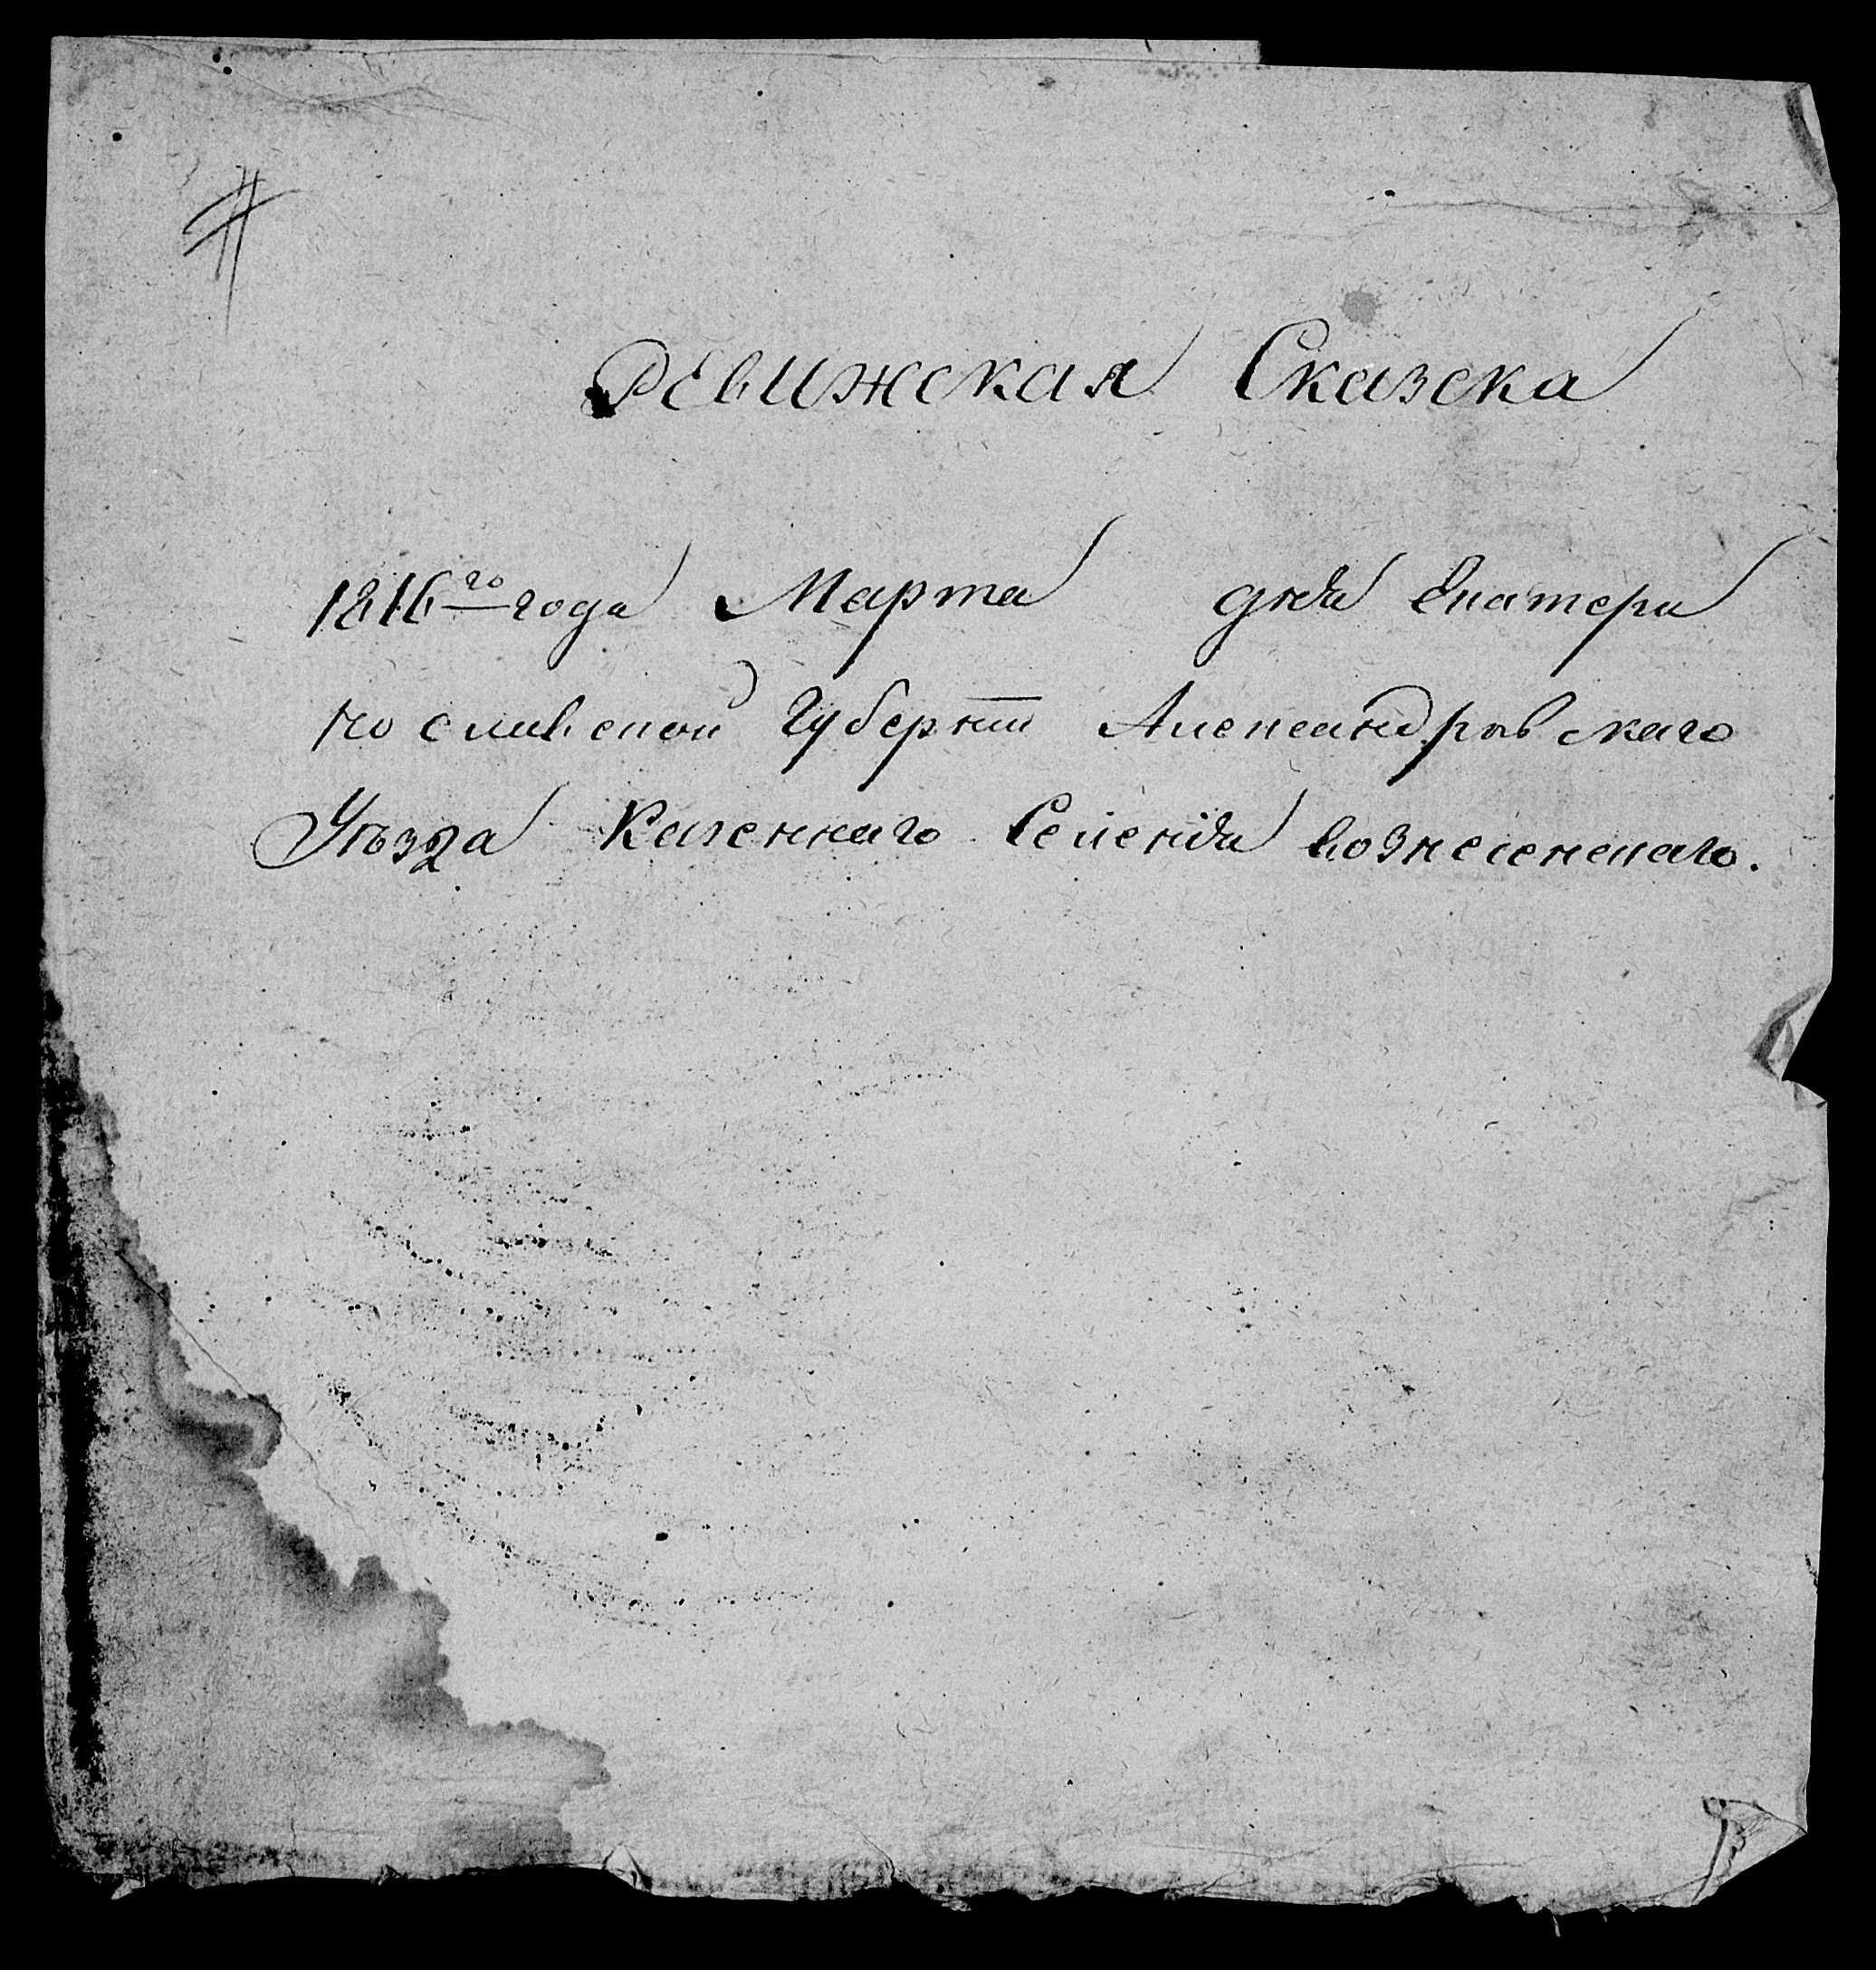 Ревижская Сказска
1816го года Марта дня Екатери
нославской Губернїи Александровскаго
Уѣзда Казеннаго Селенїя вознесенскаго.